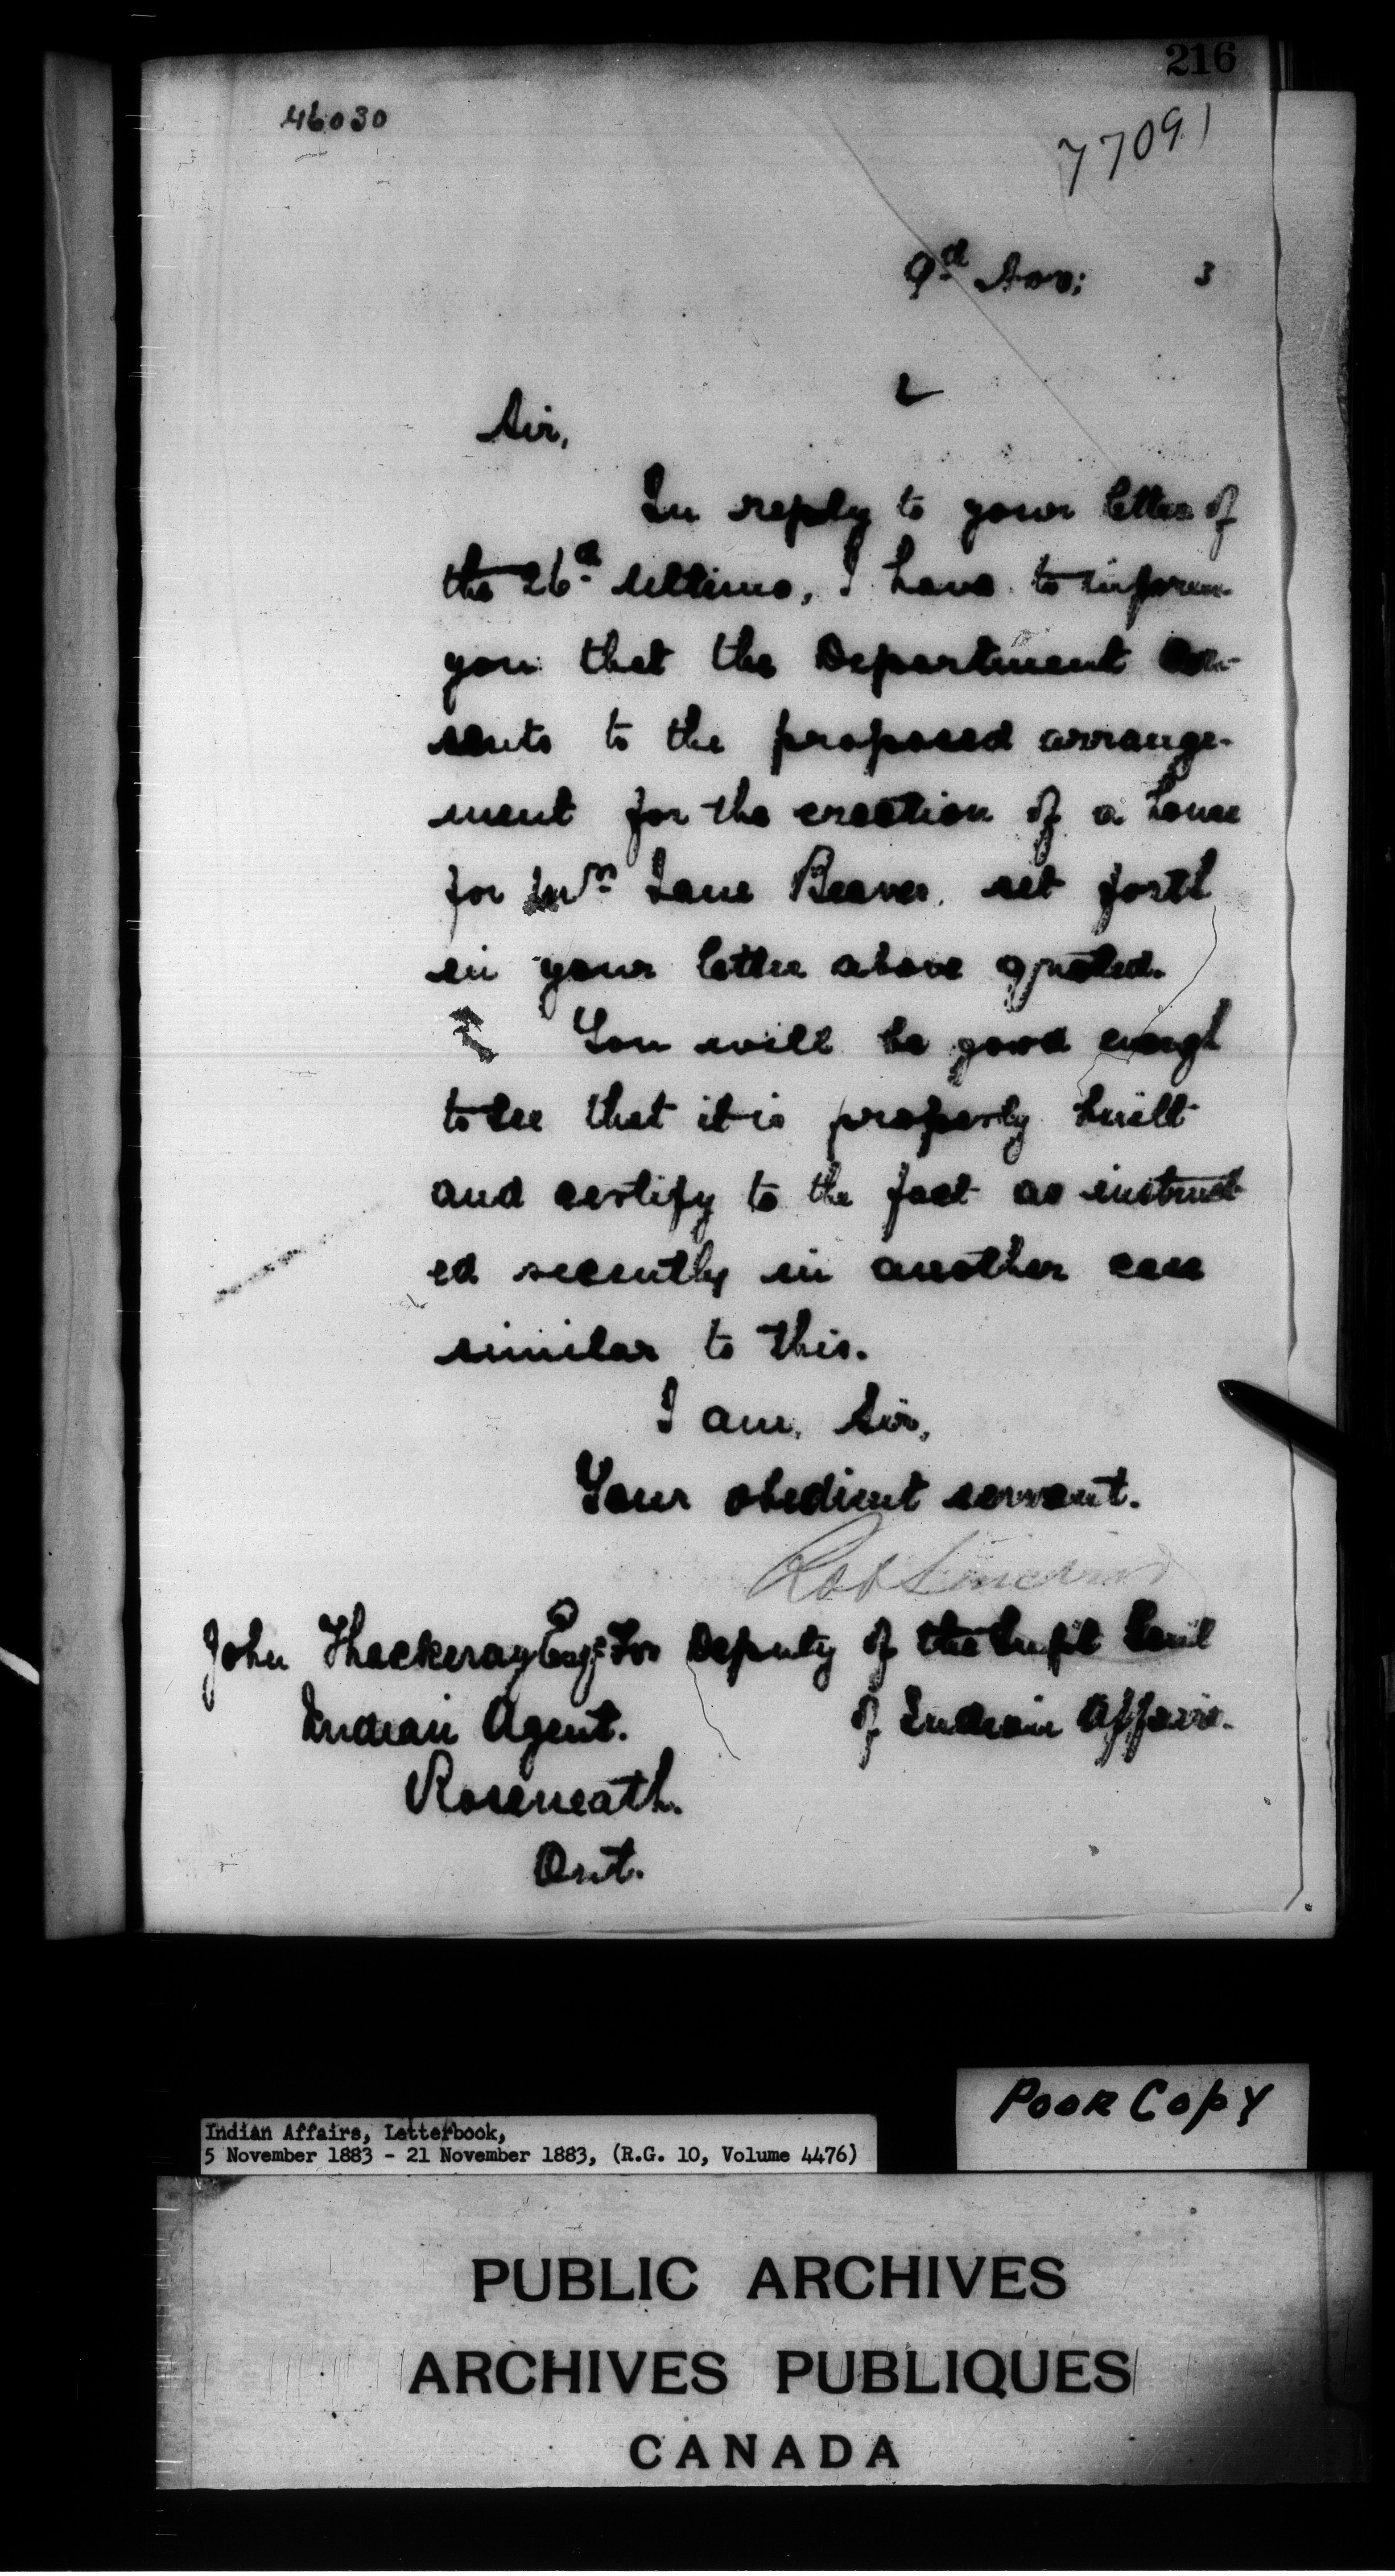 216
46030
77091
9th Nov: 3
Sir,
In reply to your letter of
the 26th ultimo, I have to inform
you that the Department con-
sents to the proposed arrange-
ment for the erection of a house
for Mrs Jane Beaver, set forth
in your letter above quoted.
You will be good enough
to see that it is properly built
and certify to the fact as instruct
ed recently in another case
similar to this.
I am, Sir,
Your obedient servant.
John Thackeray Esqr For Deputy of the Supt Genl
Indian Agent. of Indian Affairs.
Roseneath.
Ont.
POOR COPY
Indian Affairs, Letterbook,
5 November 1883 - 21 November 1883, (R.G. 10, Volume 4476)
PUBLIC ARCHIVES
ARCHIVES PUBLIQUES
CANADA